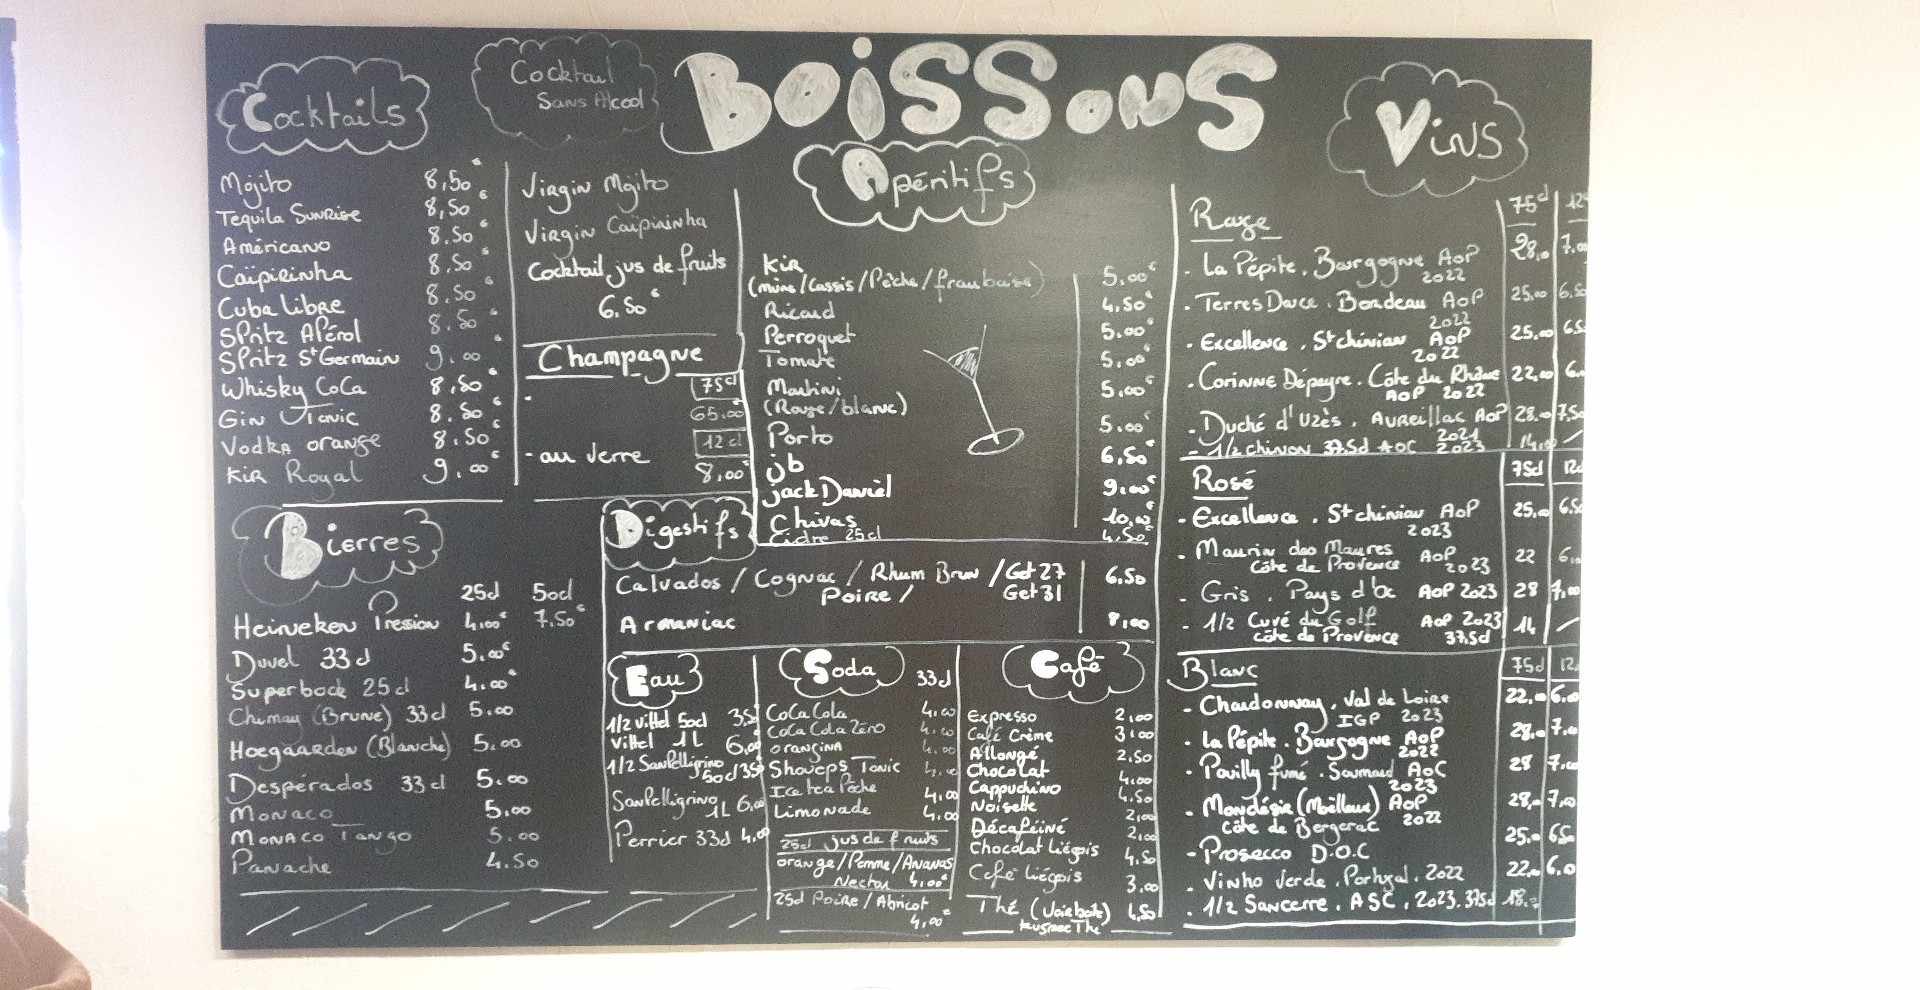 BOISSONS
Cocktails
Mojito 8,50€
Tequila Sunrise 8,50€
Américano 8.50€
Caïpirinha 8.50€
Cuba Libre 8.50€
SPritz APérol 8.50€
SPritz St Germain 9.00€
Whisky CoCa 8,50€
Gin Tonic 8.50€
Vodka orange 8.50€
Kir Royal 9.00€
Cocktail
Sans Alcool
Virgin Mojito
Virgin Caïpirinha
Cocktail jus de fruits
6.50€
Champagne
75cl
65.00
12 cl
- au verre 8,00€
Bierres
25cl 50cl
Heineken Pression 4,00€ 7.50€
Duvel 33cl 5.00€
Superbock 25cl 4.00€
Chimay (Brune) 33cl 5.00
Hoegaarden (Blanche) 5.00
Despérados 33cl 5.00
Monaco 5.00
Monaco Tango 5.00
Panache 4.50
Apéritifs
Kir 5.00€
(mûre/Cassis/Pêche/framboise)
Ricard 4,50€
Perroquet 5.00€
Tomate 5.00€
Martini 5.00€
(Rouge/blanc)
Porto 5.00€
jb 6,50€
jack Daniel 9.00€
Chivas 10,00€
Cidre 25cl 4.50
Digestifs
Calvados / Cognac / Rhum Brun / Get 27 6.50
Poire / Get 31
Armaniac 8,00
Eau
1/2 Vittel 50cl 3,50
Vittel 1L 6,00
1/2 SanPelligrino
50cl 3.50
SanPelligrino
1L 6,00
Perrier 33cl 4.00
Soda 33cl
CoCa Cola 4.00
CoCa Cola Zéro 4.00
orangina 4.00
Shoueps Tonic 4.00
Ice tea Pêche 4,00
Limonade 4,00
25cl jus de fruits
orange/Pomme/Ananas
Nectar 4,00€
25cl Poire/Abricot
4,00€
Café
Expresso 2,00
Café Crème 3,00
Allongé 2.50
Chocolat 4.00
Cappuchino 4.50
Noisette 2,00
Décaféiné 2,00
Chocolat Liégois 4.50
Café Liégois 3,00
Thé 4,50
KusmeeThé
Vins
Rouge 75cl 12
- La Pépite. Bourgogne AoP 28,00 7.00
2022
- Terres Douce. Bordeau AoP 25.00 6.50
2022
- Excellence. St chinian AoP 25.00 6.5
2022
- Corinne Dépeyre. Côte du Rhône 22,00 6.0
AoP 2022
- Duché d'Uzès. Aureillac AoP 28.00 7.50
2021
- 1/2 chinon 37.5cl AOC 2023 14,00 /
Rosé 75cl 12cl
- Excellence. St chinian AoP 25.00 6.50
2023
- Maurin des Maures AoP 22 6,00
Côte de Provence 2023
- Gris. Pays d'oc AoP 2023 28 7,00
- 1/2 Cuvé du Golf AoP 2023 14 /
côte de Provence 37.5cl
Blanc 75cl 12
- Chardonnay. Val de Loire 22,00 6.00
IGP 2023
- La Pépite. Bourgogne AoP 28,00 7.00
2022
- Pouilly fumé. Saumaud AoC 28 7,00
2023
- Mondésie (Moëlleux) AoP 28,00 7,00
côte de Bergerac 2022
- Prosecco D.O.C 25.00 6.50
- Vinho Verde. Portugal. 2022 22.00 6.00
- 1/2 Sancerre. ASC. 2023. 37.5cl 18.